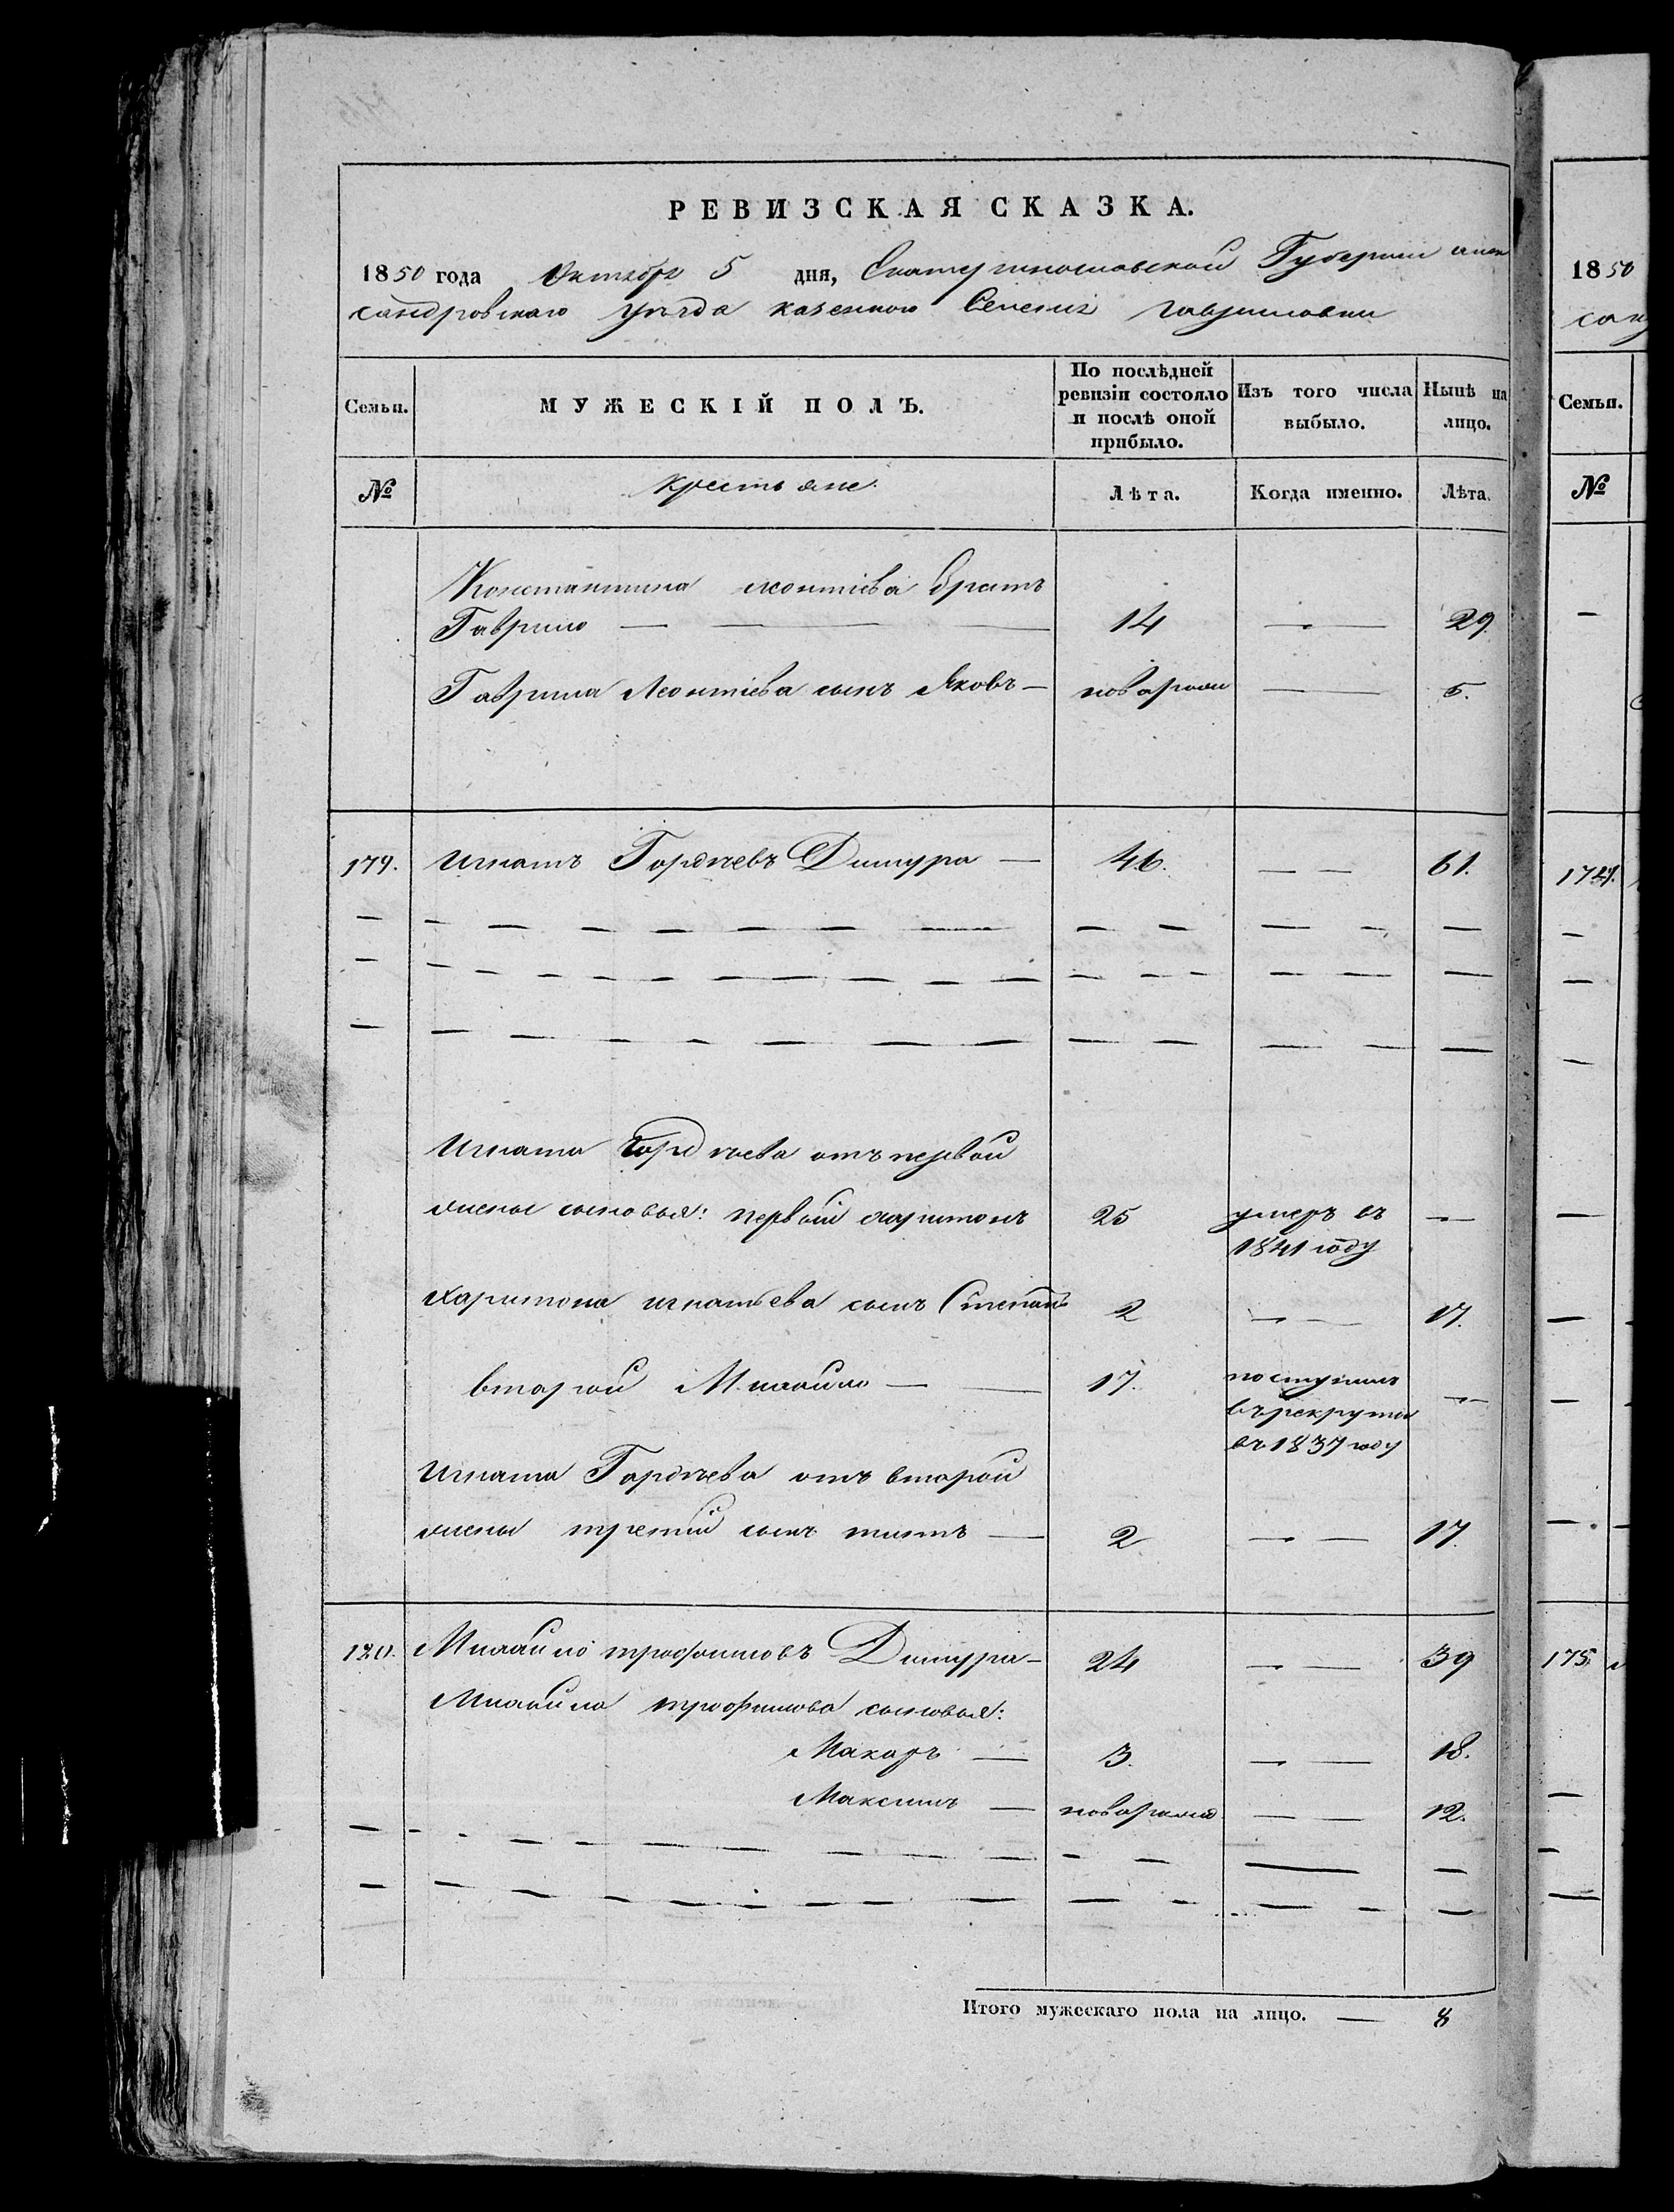 РЕВИЗСКАЯ СКАЗКА.
1850 года Октября 5 дня, Екатеринославской Губернии алек
сандровскаго уѣзда казенного Селенія гавриловки
Семьи.
МУЖЕСКІЙ ПОЛЪ.
По послѣдней ревизіи состояло и послѣ оной прибыло.
Изъ того числа выбыло.
Нынѣ на лицо.
№ крестьяне. Лѣта. Когда именно. Лѣта.
Константина леонтіева братъ
Гаврило — — — 14 — — 29.
Гаврила Леонтіева сынъ Яковъ — новорожн — — 5.
179. Игнатъ Гордѣевъ Дитура — 46. — — 61.
Игната Гордѣева отъ первой
жены сыновья: первый харитонъ 25 умеръ въ —
1841 году
Харитона игнатьева сынъ Степанъ 2 — — 17.
второй Михайло — — 17. поступилъ —
въ рекруты
въ 1837 году
Игната Гордѣева отъ второй
жены третій сынъ титъ — 2 — — 17.
180. Михайло трофимовъ Дитура — 24 — — 39
Михайла трофимова сыновья:
Макаръ — 3. — — 18.
Максимъ — новорожд — — 12.
Итого мужескаго пола на лицо. — 8
1850
Семьи.
№
174.
175.